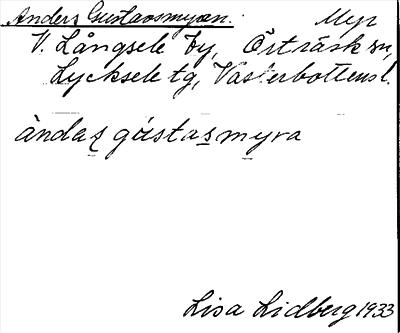 Anders Gustavsmyran. Myr
V. Långsele by, Örträsk sn,
Lycksele tg, Västerbottens l.
àndas gástasmyra
Lisa Lidberg 1933